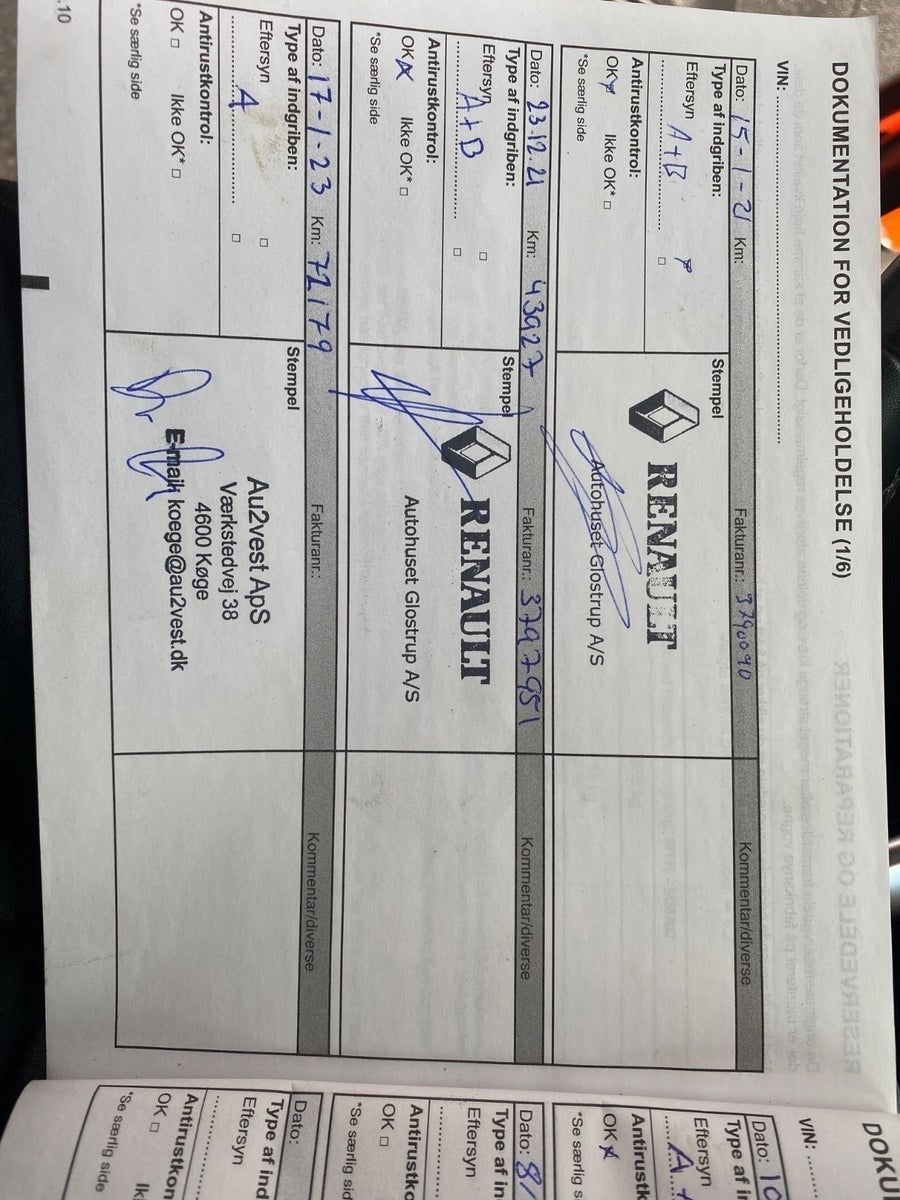 DOKUMENTATION FOR VEDLIGEHOLDELSE (1/6)
VIN: ..........
Dato: 15-1-21 Km: Fakturanr.: 3790090 Kommentar/diverse
Type af indgriben: Stempel
Eftersyn A+B
RENAULT
Autohuset Glostrup A/S
Antirustkontrol:
OK Ikke OK* □
*Se særlig side
Dato: 23.12.21 Km: 43927 Fakturanr.: 3797951 Kommentar/diverse
Type af indgriben: Stempel
Eftersyn □
A+B □
RENAULT
Autohuset Glostrup A/S
Antirustkontrol:
OK Ikke OK* □
*Se særlig side
Dato: 17-1-23 Km: 72179 Fakturanr.: Kommentar/diverse
Type af indgriben: Stempel
Eftersyn □
A □
Au2vest ApS
Værkstedvej 38
4600 Køge
E-mail: koege@au2vest.dk
Antirustkontrol:
OK □ Ikke OK* □
*Se særlig side
.10
DOKU
VIN: ......
Dato: 10
Type af in
Eftersyn
A+
Antirustk
OK
*Se særlig s
Dato: 8/
Type af in
Eftersyn
Antirustko
OK □
*Se særlig sid
Dato:
Type af ind
Eftersyn
Antirustkon
OK □ Ik
*Se særlig side